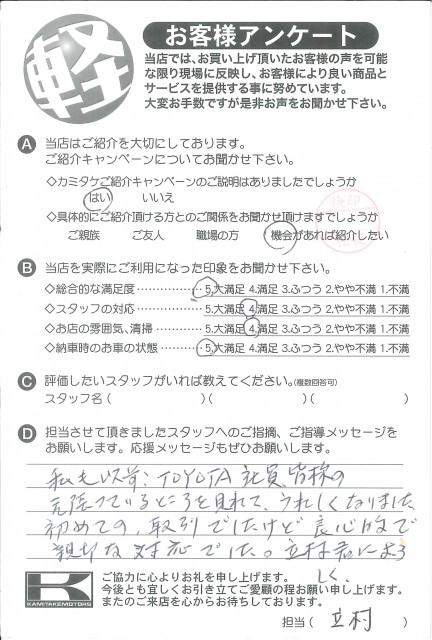 軽
お客様アンケート
当店では、お買い上げ頂いたお客様の声を可能
な限り現場に反映し、お客様により良い商品と
サービスを提供する事に努めています。
大変お手数ですが是非お声をお聞かせ下さい。
A 当店はご紹介を大切にしております。
ご紹介キャンペーンについてお聞かせ下さい。
◇カミタケご紹介キャンペーンのご説明はありましたでしょうか
はい いいえ
◇具体的にご紹介頂ける方とのご関係をお聞かせ頂けますでしょうか
ご親族 ご友人 職場の方 機会があれば紹介したい
B 当店を実際にご利用になった印象をお聞かせ下さい。
◇総合的な満足度 5.大満足 4.満足 3.ふつう 2.やや不満 1.不満
◇スタッフの対応 5.大満足 4.満足 3.ふつう 2.やや不満 1.不満
◇お店の雰囲気、清掃 5.大満足 4.満足 3.ふつう 2.やや不満 1.不満
◇納車時のお車の状態 5.大満足 4.満足 3.ふつう 2.やや不満 1.不満
C 評価したいスタッフがいれば教えてください。(複数回答可)
スタッフ名 ( )( )( )
D 担当させて頂きましたスタッフへのご指摘、ご指導メッセージを
お願いします。応援メッセージもぜひお願いします。
私も以前、TOYOTA社員、皆様の
元張っているところを見れて、うれしくなりました
初めての、取引でしたけど良心的で
親切な対応でした。立村君によろ
しく、
KAMITAKEMOTORS
ご協力に心よりお礼を申し上げます。
今後とも宜しくお引き立てご愛顧の程お願い申し上げます。
またのご来店を心からお待ちしております。
担当 ( 立村 )